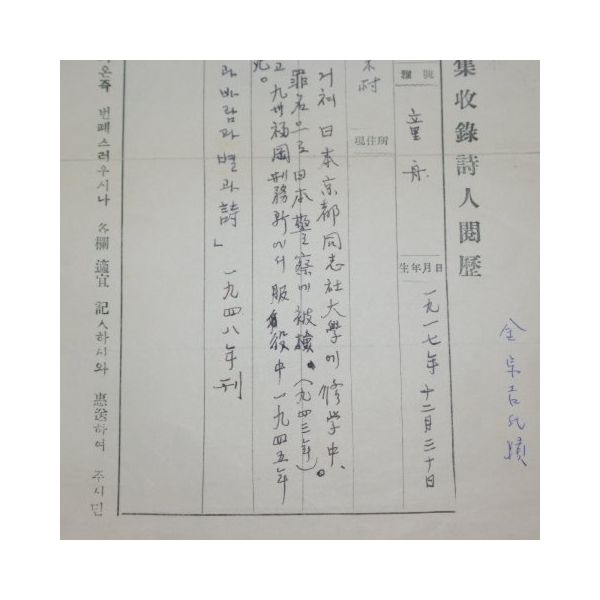 金宗吉氏蹟
集收錄詩人閱歷
雅號
童舟
生年月日
一九一七年十二月三十日
村
現住所
거쳐 日本京都同志社大學에 修学中、
罪名으로 日本警察에 被檢。(一九四三年)
고 九州福岡刑務所에서 服役中 一九四五年
死。
과바람과별과詩」 一九四八年刊
온즉 번폐스러우시나 各欄適宜 記入하시와 惠送하여 주시면